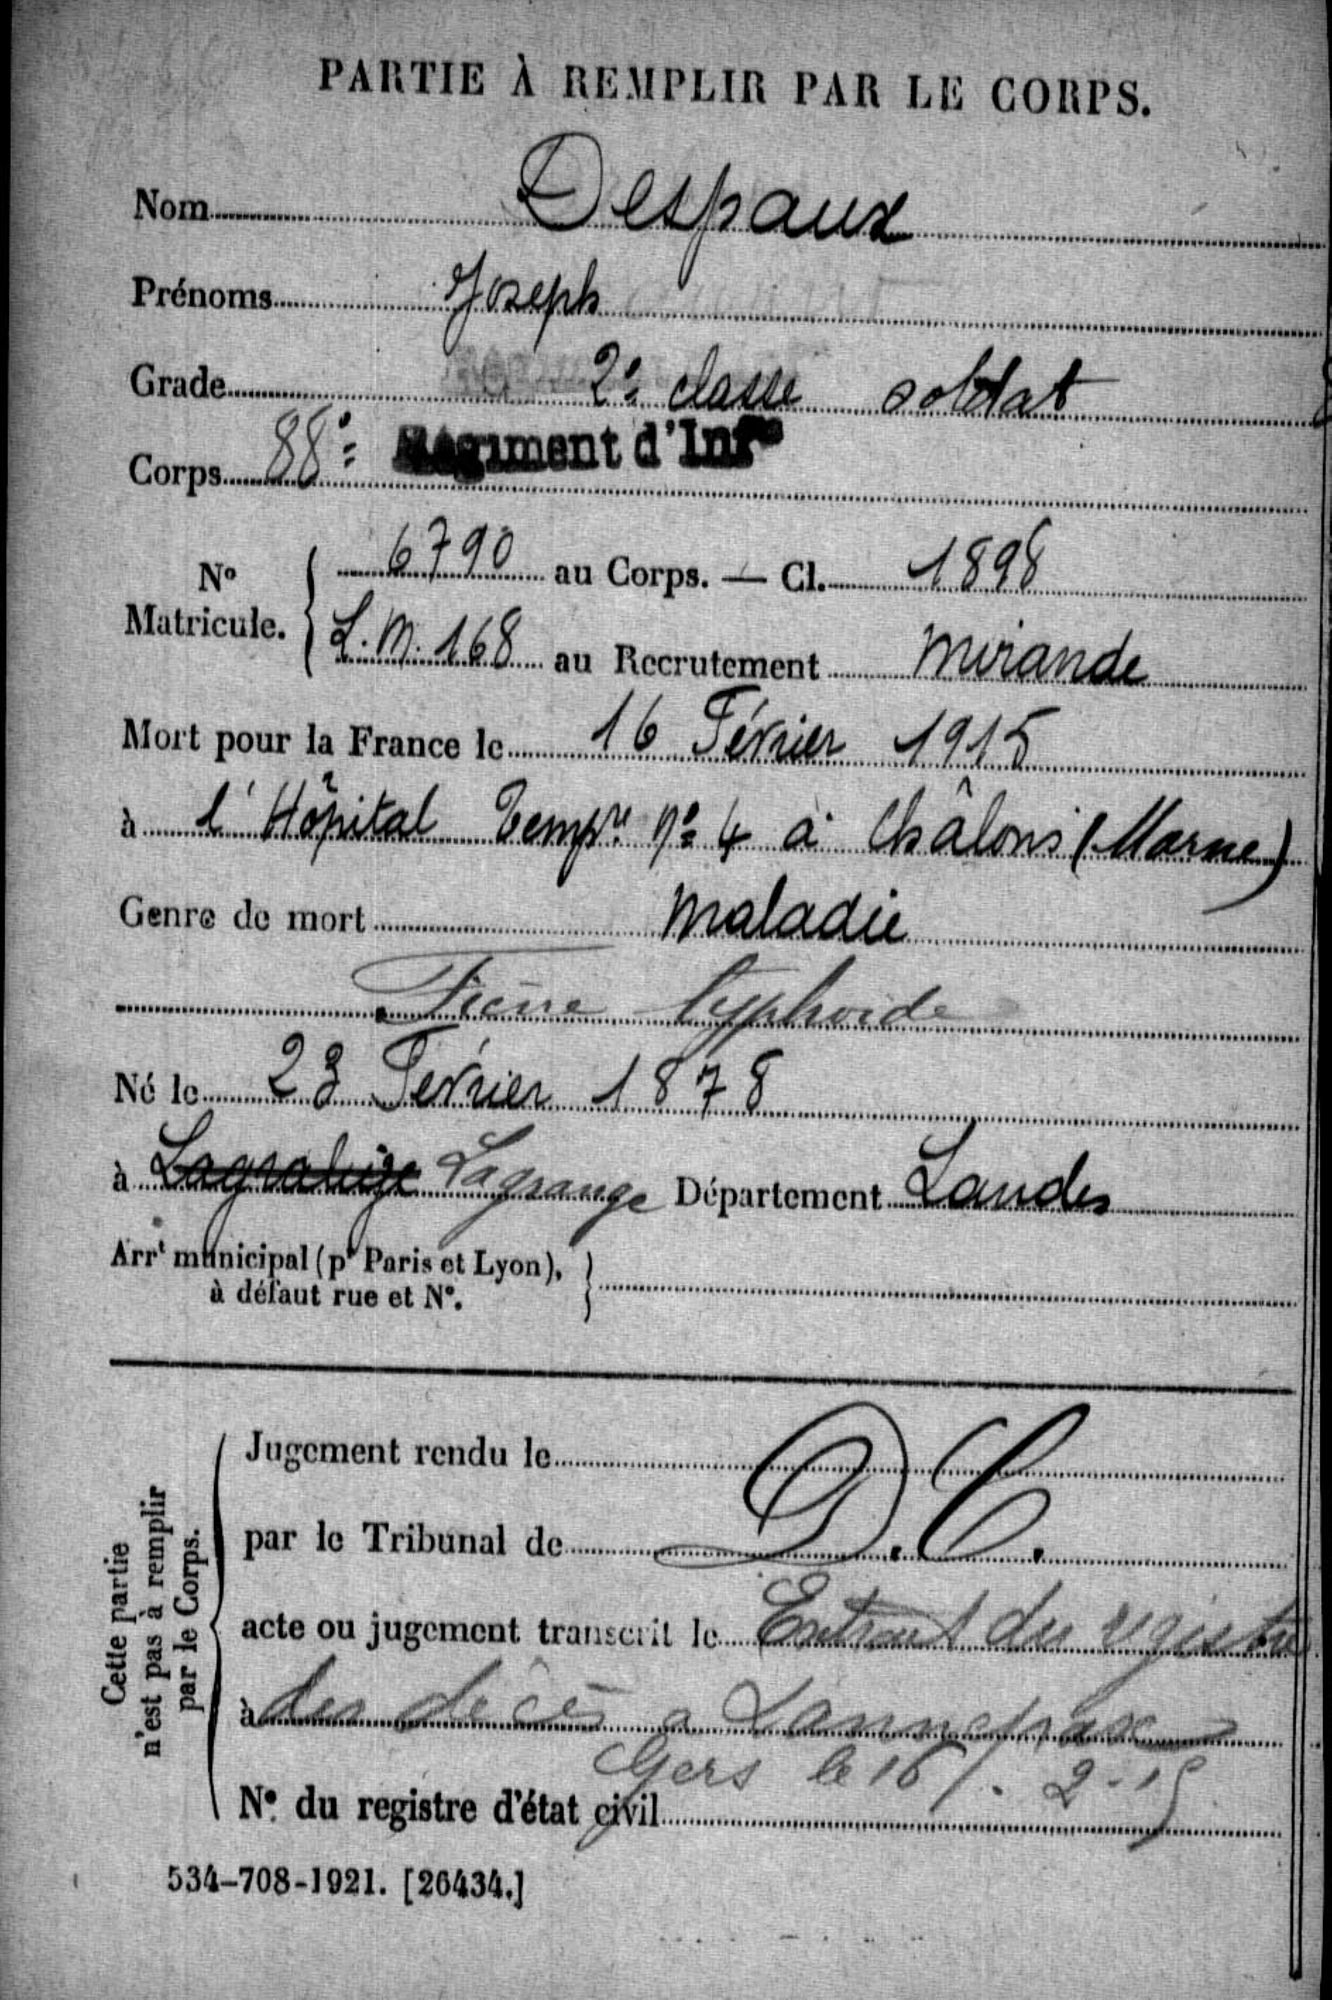 PARTIE À REMPLIR PAR LE CORPS.
Nom Despaux
Prénoms Joseph
Grade 2e classe soldat
Corps 88e Régiment d'Infie
No Matricule. 6790 au Corps. — Cl. 1898
L.M. 168 au Recrutement Mirande
Mort pour la France le 16 Février 1915
à l'Hôpital Tempre no 4 à Châlons (Marne)
Genre de mort Maladie
Fièvre typhoide
Né le 23 Février 1878
à Lagraulège Lagrange Département Landes
Arrt municipal (pr Paris et Lyon),
à défaut rue et N°.
Cette partie
n'est pas à remplir
par le Corps.
Jugement rendu le
par le Tribunal de D.C.
acte ou jugement transcrit le Extrait du registre
à des décès a Lannepax
Gers le 16/.2-15
N° du registre d'état civil
534-708-1921. [26434.]